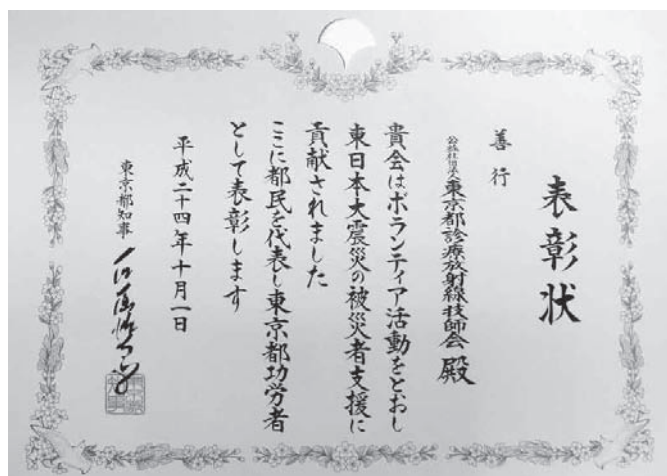 表彰状
善行
公益社団法人東京都診療放射線技師会 殿
貴会はボランティア活動をとおし
東日本大震災の被災者支援に
貢献されました
ここに都民を代表し東京都功労者
として表彰します
平成二十四年十月一日
東京都知事 石原慎太郎